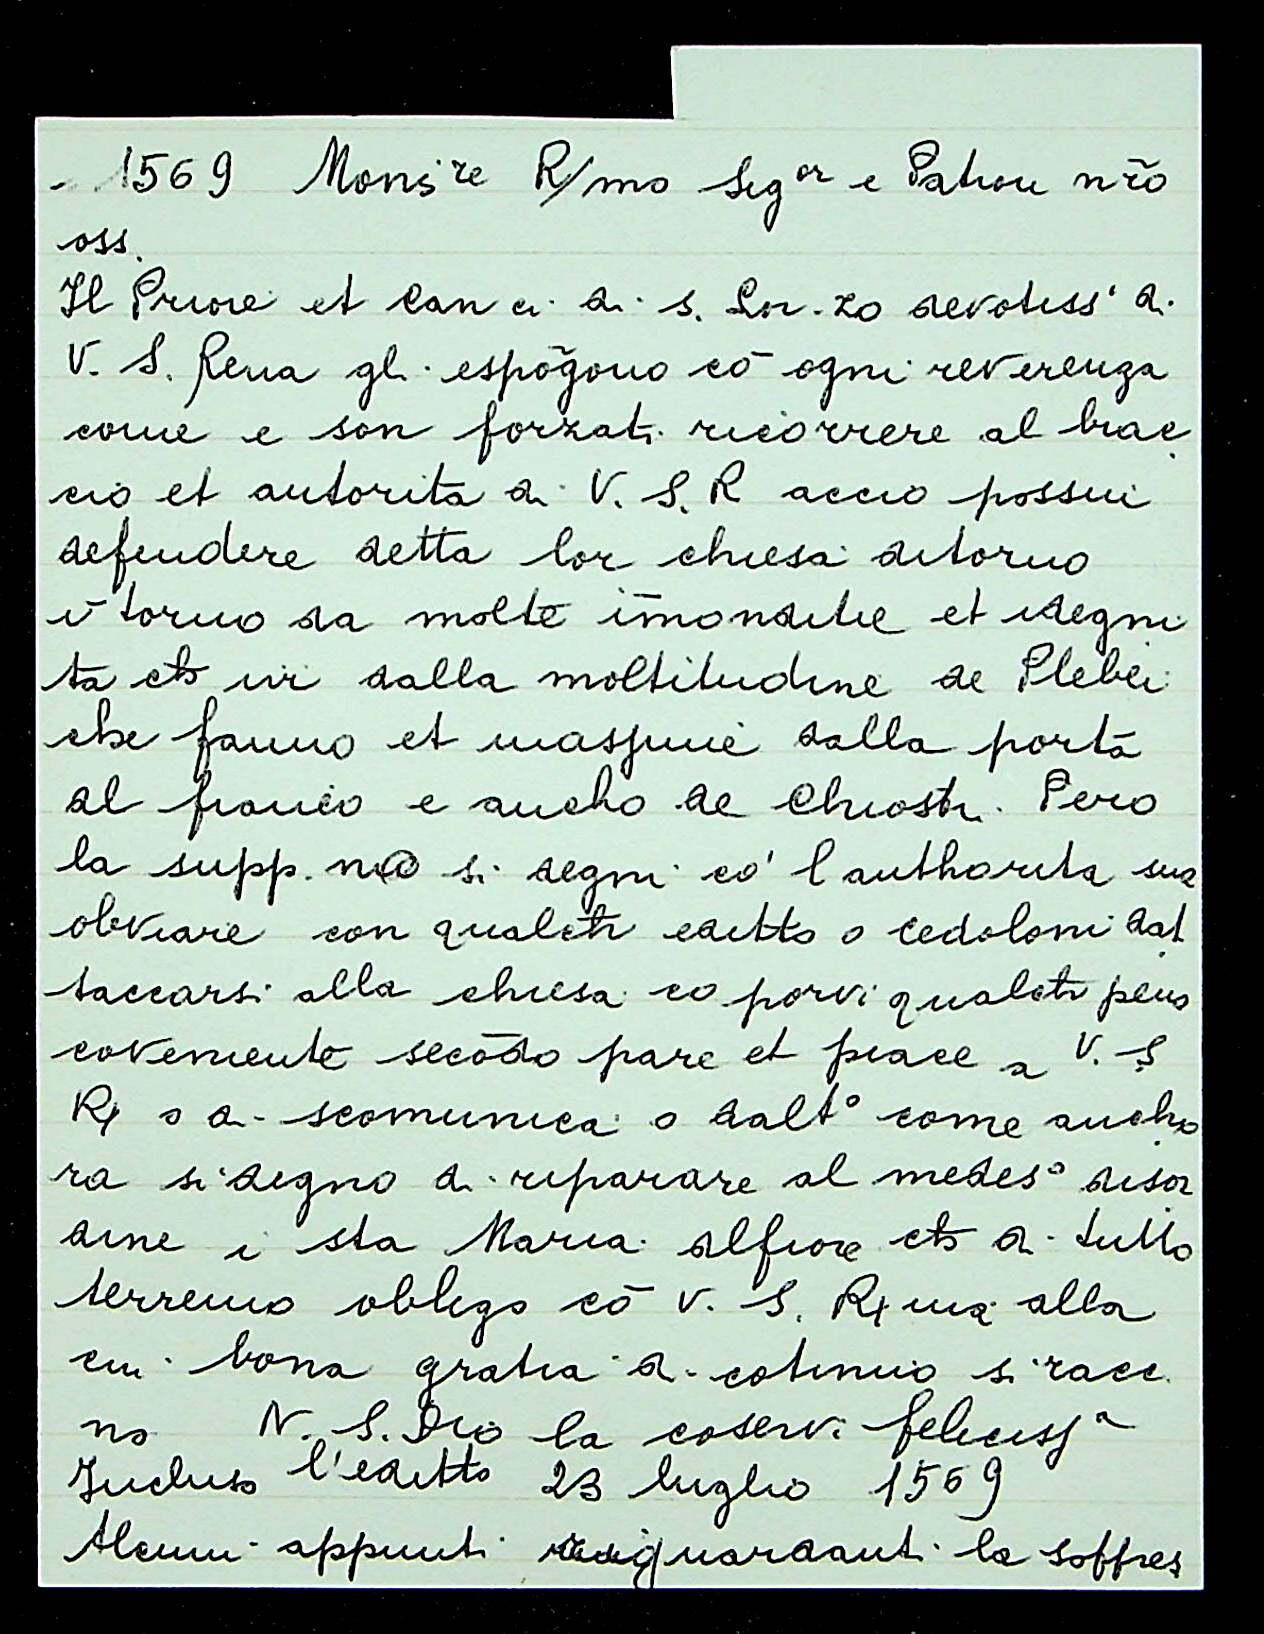 1569 Monsre R/mo Sigor e Patron nr̃o
oss.
Il Priore et Can ci di s. Lor.zo devotiss' di
V. S. Rena gli espõgono cō ogni reverenza
come e son forzati ricorrere al brac
cio et autorita di V. S. R accio possui
defendere detta lor chiesa ditorno
ī torno da molte īmonditie et idegni
ta ch ivi dalla moltitudine de Plebei
che fanno et massime dalla porta
al fianco e ancho de Chiostri. Pero
la supp. si degni co' l'authorita sua
obviare con qualch editto o cedoloni dat
taccarsi alla chiesa co porvi qualch pena
coveniente secōdo pare et piace a V. S
R o di scomunica o dalto come ancho
ra si degno di riparare al medeso disor
dine i sta Maria alfiore ch di tutto
terremo obligo cō V. S. R ma alla
cui bona gratia di cotinuo si racc.
no N. S. Dio la coservi felicissa
Incluso l'editto 23 luglio 1569
Alcuni appunti riguardanti la soffres